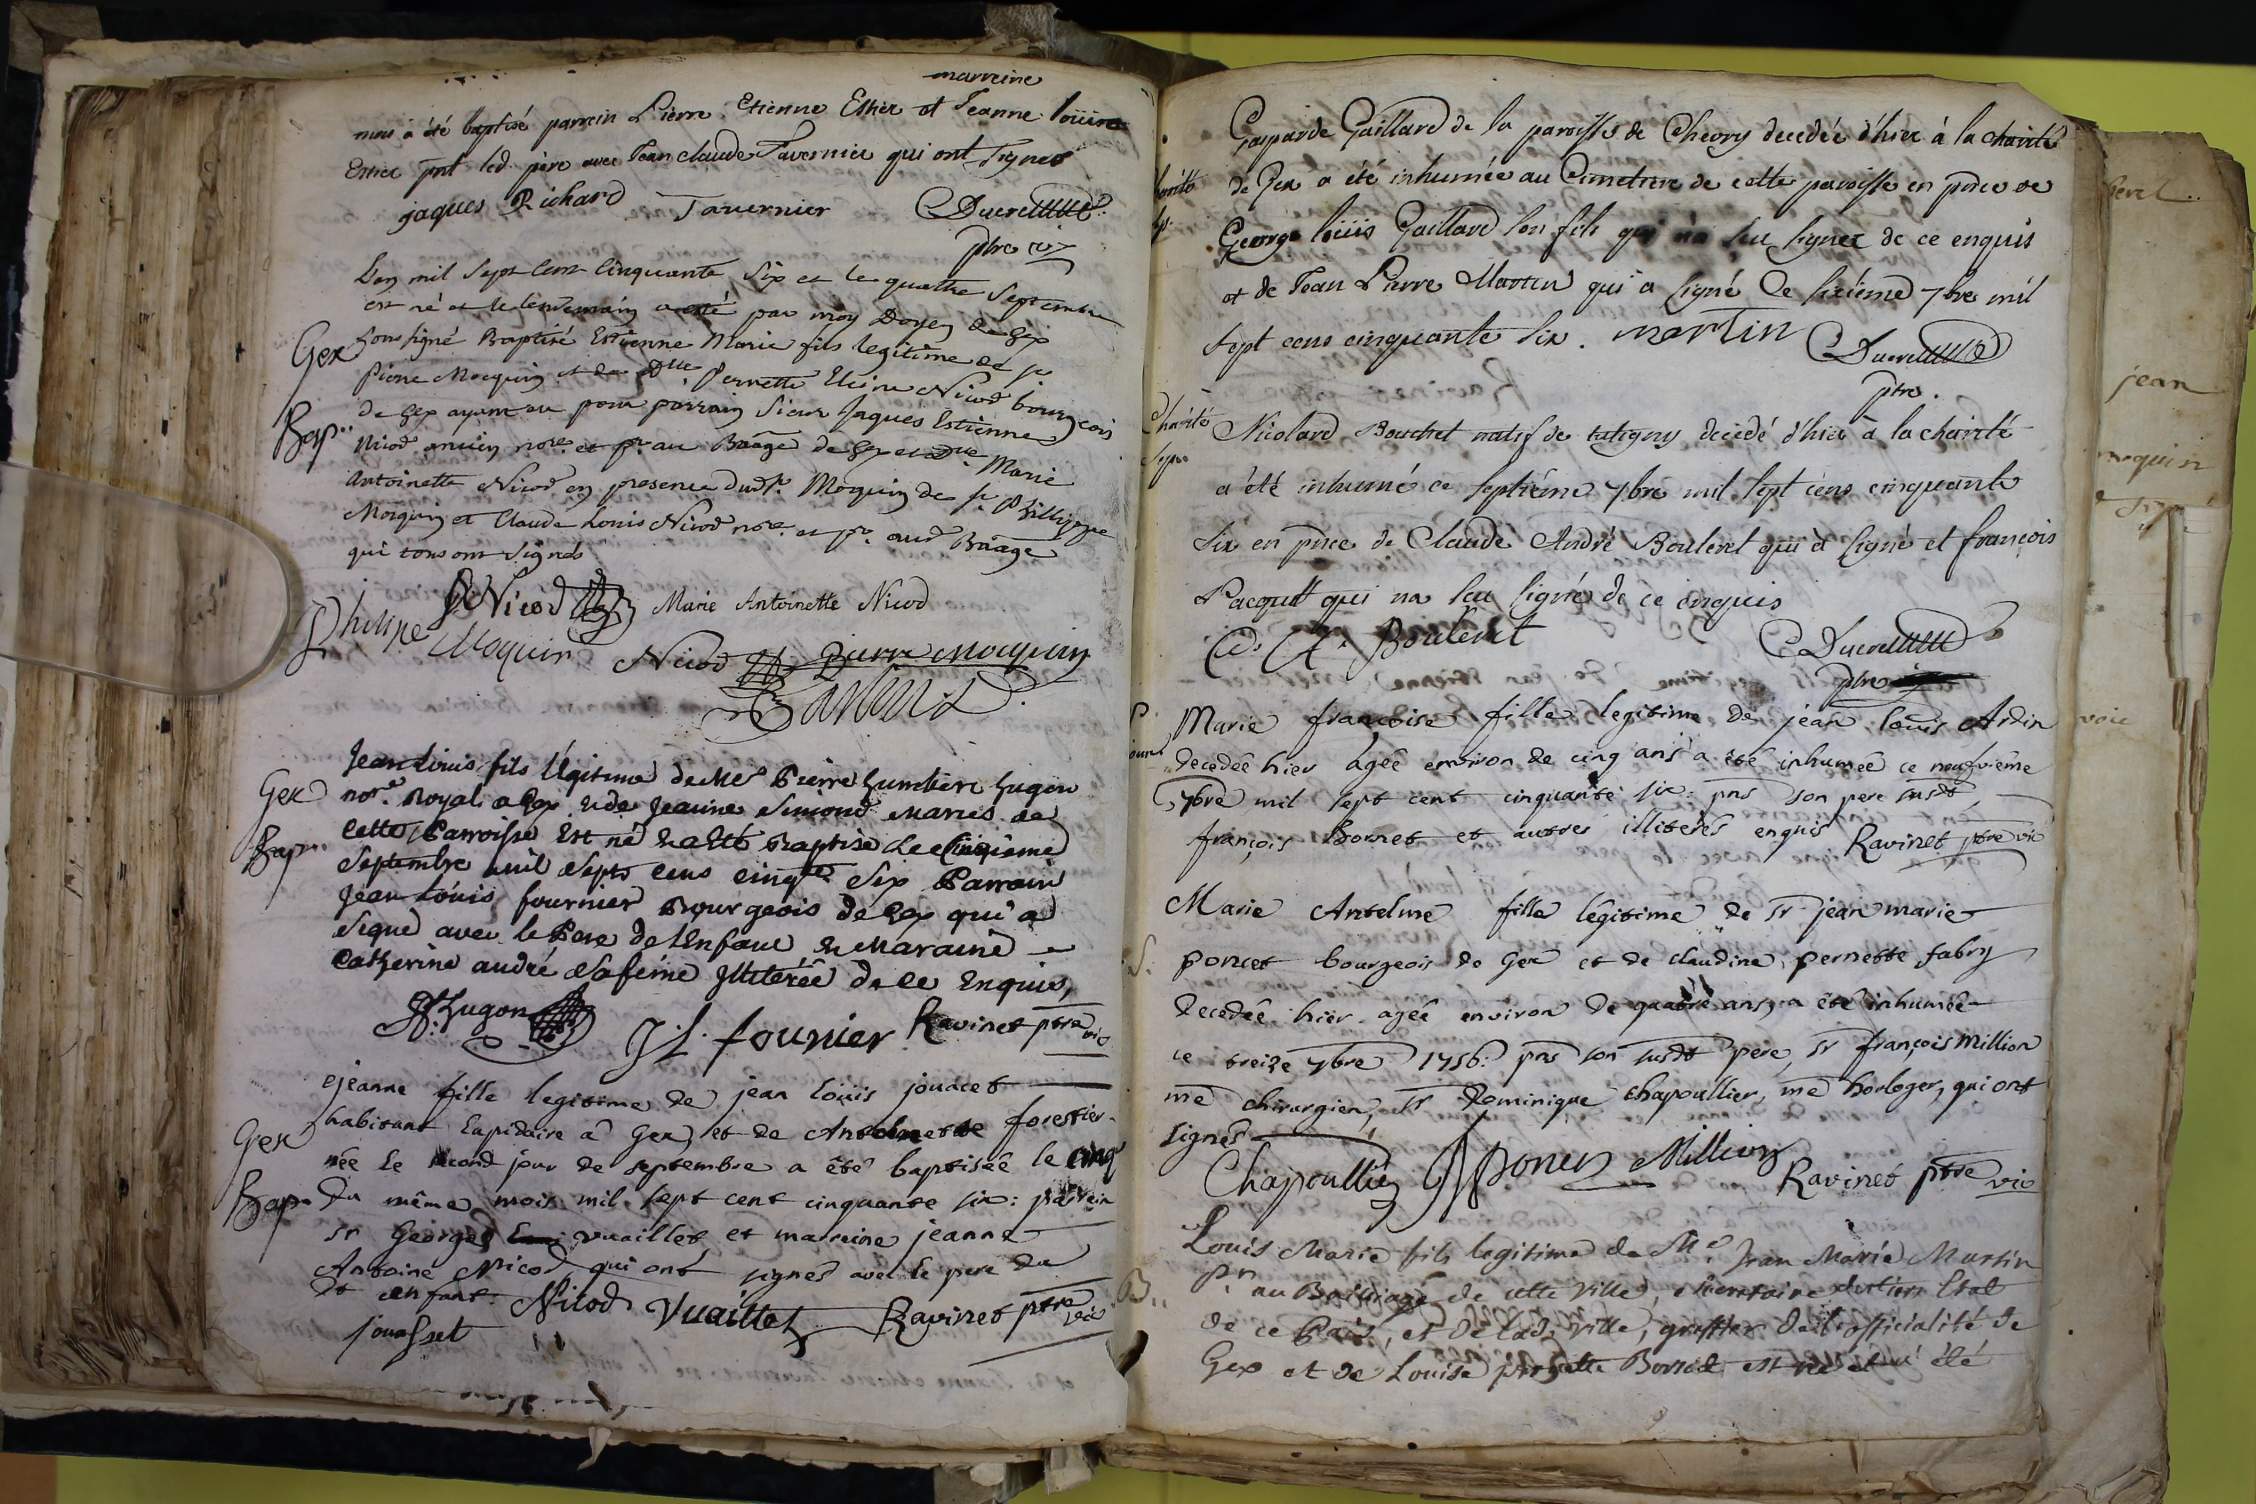 marreine
nous à été baptisé parrein Pierre Etienne Estier et Jeanne loüise
Estier pnt led. père avec Jean claude Tavernier qui ont signes
jaques Richard Tavernier Ducret
ptre vic
L'an mil sept cent Cinquante six et le quatre septembre
est né et le lendemain a esté par moy Doyen de Gex
Gex
soussigné Baptisé Estienne Marie fils legitime de sr
Pierre Mocquin et de Dlle Pernette Nicod bourgeois
de Gex ayant eu pour parrain Sieur Jaques Estienne
Bap..
Nicod ancien nore. et pr. au Baage de Gex et Dlle Marie
Antoinette Nicod en presence dudt. Moquin de sr Phillippe
Moquin et Claude Louis Nicod nore. et pr. aud Baage
qui tous ont signés
Nicod Marie Antoinette Nicod
Philipe Moquin Nicod Pierre Mocquin
Jean Louis fils légitime de Me Pierre humbert hugon
Gex
nore. Royal a Gex & de Jeanne Simond Mariés de
Cette Parroisse Est né & a Eté Baptisé le Cinqième
Bap..
Septembre mil Septs Cens cinqte Six Parrain
Jean Louis fournier Bourgeois de Gex qui a
Signé avec le Pere de l'Enfant & Maraine
Catherine andré Safème Illiterée de ce Enquis,
hugon J L fournier Ravinet ptre vic
jeanne fille legitime de jean loüis jouacet
habitant lapidaire à Gex, et de Antoinette forestier
Gex
née le second jour de septembre a été baptisée le cinq
Bap..
du même mois mil sept cent cinquante six: parrein
sr George vuaillet et marreine jeanne
Antoine Nicod qui ont signés avec le pere du
dt enfant. Nicod Vuaillet Ravinet ptre vic
jouasset
Gasparde Gaillard de la paroisse de Chevry decedée d'hier à la charité
de Gex a été inhumée au Cimetiere de cette paroisse en pnce de
George loüis Gaillard son fils qui n'a sçu signer de ce enquis
et de Jean Pierre Martin qui a signé Ce sixième 7bre mil
sept cens cinquante six. martin Ducret
ptre.
Charité
Nicolard Bouchet natif de tutigny decedé d'hier à la charité
Sepu
a été inhumé ce septième 7bre mil sept cens cinquante
six en pnce de Claude André Bouleret qui à signé et françois
Pacquet qui na sçu signé de ce enquis
C. A. Bouleret Ducret
ptre
Marie françoise fille legitime de jean louis Ardin
decedée hier agée environ de cinq ans a été inhumée ce neufvième
7bre mil sept cent cinquante six: pns son pere susdt
françois Bornet et autres illiterés enquis Ravinet ptre vic
Marie Antelme fille légitime de sr jean marie
S.
poncet bourgeois de Gex et de claudine pernette fabry
decedée hier agée environ de quatre ans, a été inhumée
ce treize 7bre 1756: pns son susdt pere, sr françois Million
me chirurgien, sr Dominique chapoullier, me horloger, qui ont
signés
Chapoullier Poncet Million Ravinet ptre vic
Louis Marie fils legitime de Me Jean Marie Martin
B..
pr. au Bailliage de cette ville, secretaire du tiers Etat
de ce Païs, et de lad. ville, greffier de l'officialité de
Gex et de Louise pernette Borsod est né et a été
jean
moquin
voic